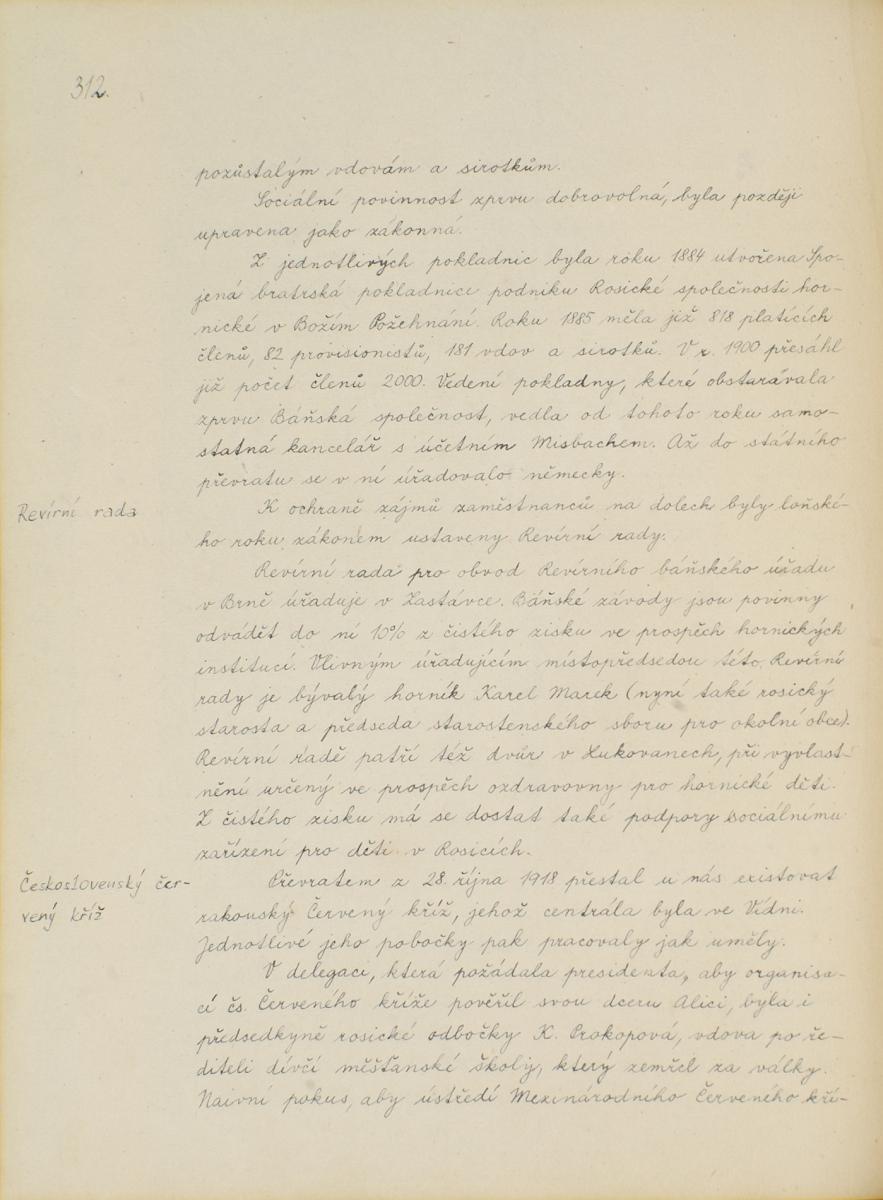 312.
pozůstalým vdovám a sirotkům.
Sociální povinnost zprvu dobrovolná, byla později
upravena jako zákonná.
Z jednotlivých pokladnic byla roku 1884 utvořena Spo-
jená bratrská pokladnice podniku Rosické společnosti hor-
nické v Božím Požehnání. Roku 1885 měla již 818 platících
členů, 82 provisionistů, 181 vdov a sirotků. V r. 1900 přesáhl
již počet členů 2000. Vedení pokladny, které obstarávala
zprvu Báňská společnost, vedla od tohoto roku samo-
statná kancelář s účetním Misbachem. Až do státního
převratu se v ní úřadovalo německy.
Revírní rada
K ochraně zájmů zaměstnanců na dolech byly loňské-
ho roku zákonem ustaveny Revírní rady.
Revírní rada pro obvod Revírního báňského úřadu
v Brně úřaduje v Zastávce. Báňské závody jsou povinny
odvádět do ní 10% z čistého zisku ve prospěch hornických
institucí. Vlivným úřadujícím místopředsedou této Revírní
rady je bývalý horník Karel Marek (nyní také rosický
starosta a předseda starostenského sboru pro okolní obce).
Revírní radě patří též dvůr v Lukovanech, při vyvlast-
nění určený ve prospěch ozdravovny pro hornické děti.
Z čistého zisku má se dostat také podpory sociálnímu
zařízení pro děti v Rosicích.
Československý čer-
vený kříž
Převratem z 28. října 1918 přestal u nás existovat
rakouský Červený kříž, jehož centrála byla ve Vídni.
Jednotlivé jeho pobočky pak pracovaly jak uměly.
V delegaci, která požádala presidenta, aby organisa-
cí čs. Červeného kříže pověřil svou dceru Alici, byla i
předsedkyně rosické odbočky K. Prokopová, vdova po ře-
diteli dívčí měšťanské školy, který zemřel za války.
Naivní pokus, aby ústředí Mezinárodního Červeného kří-